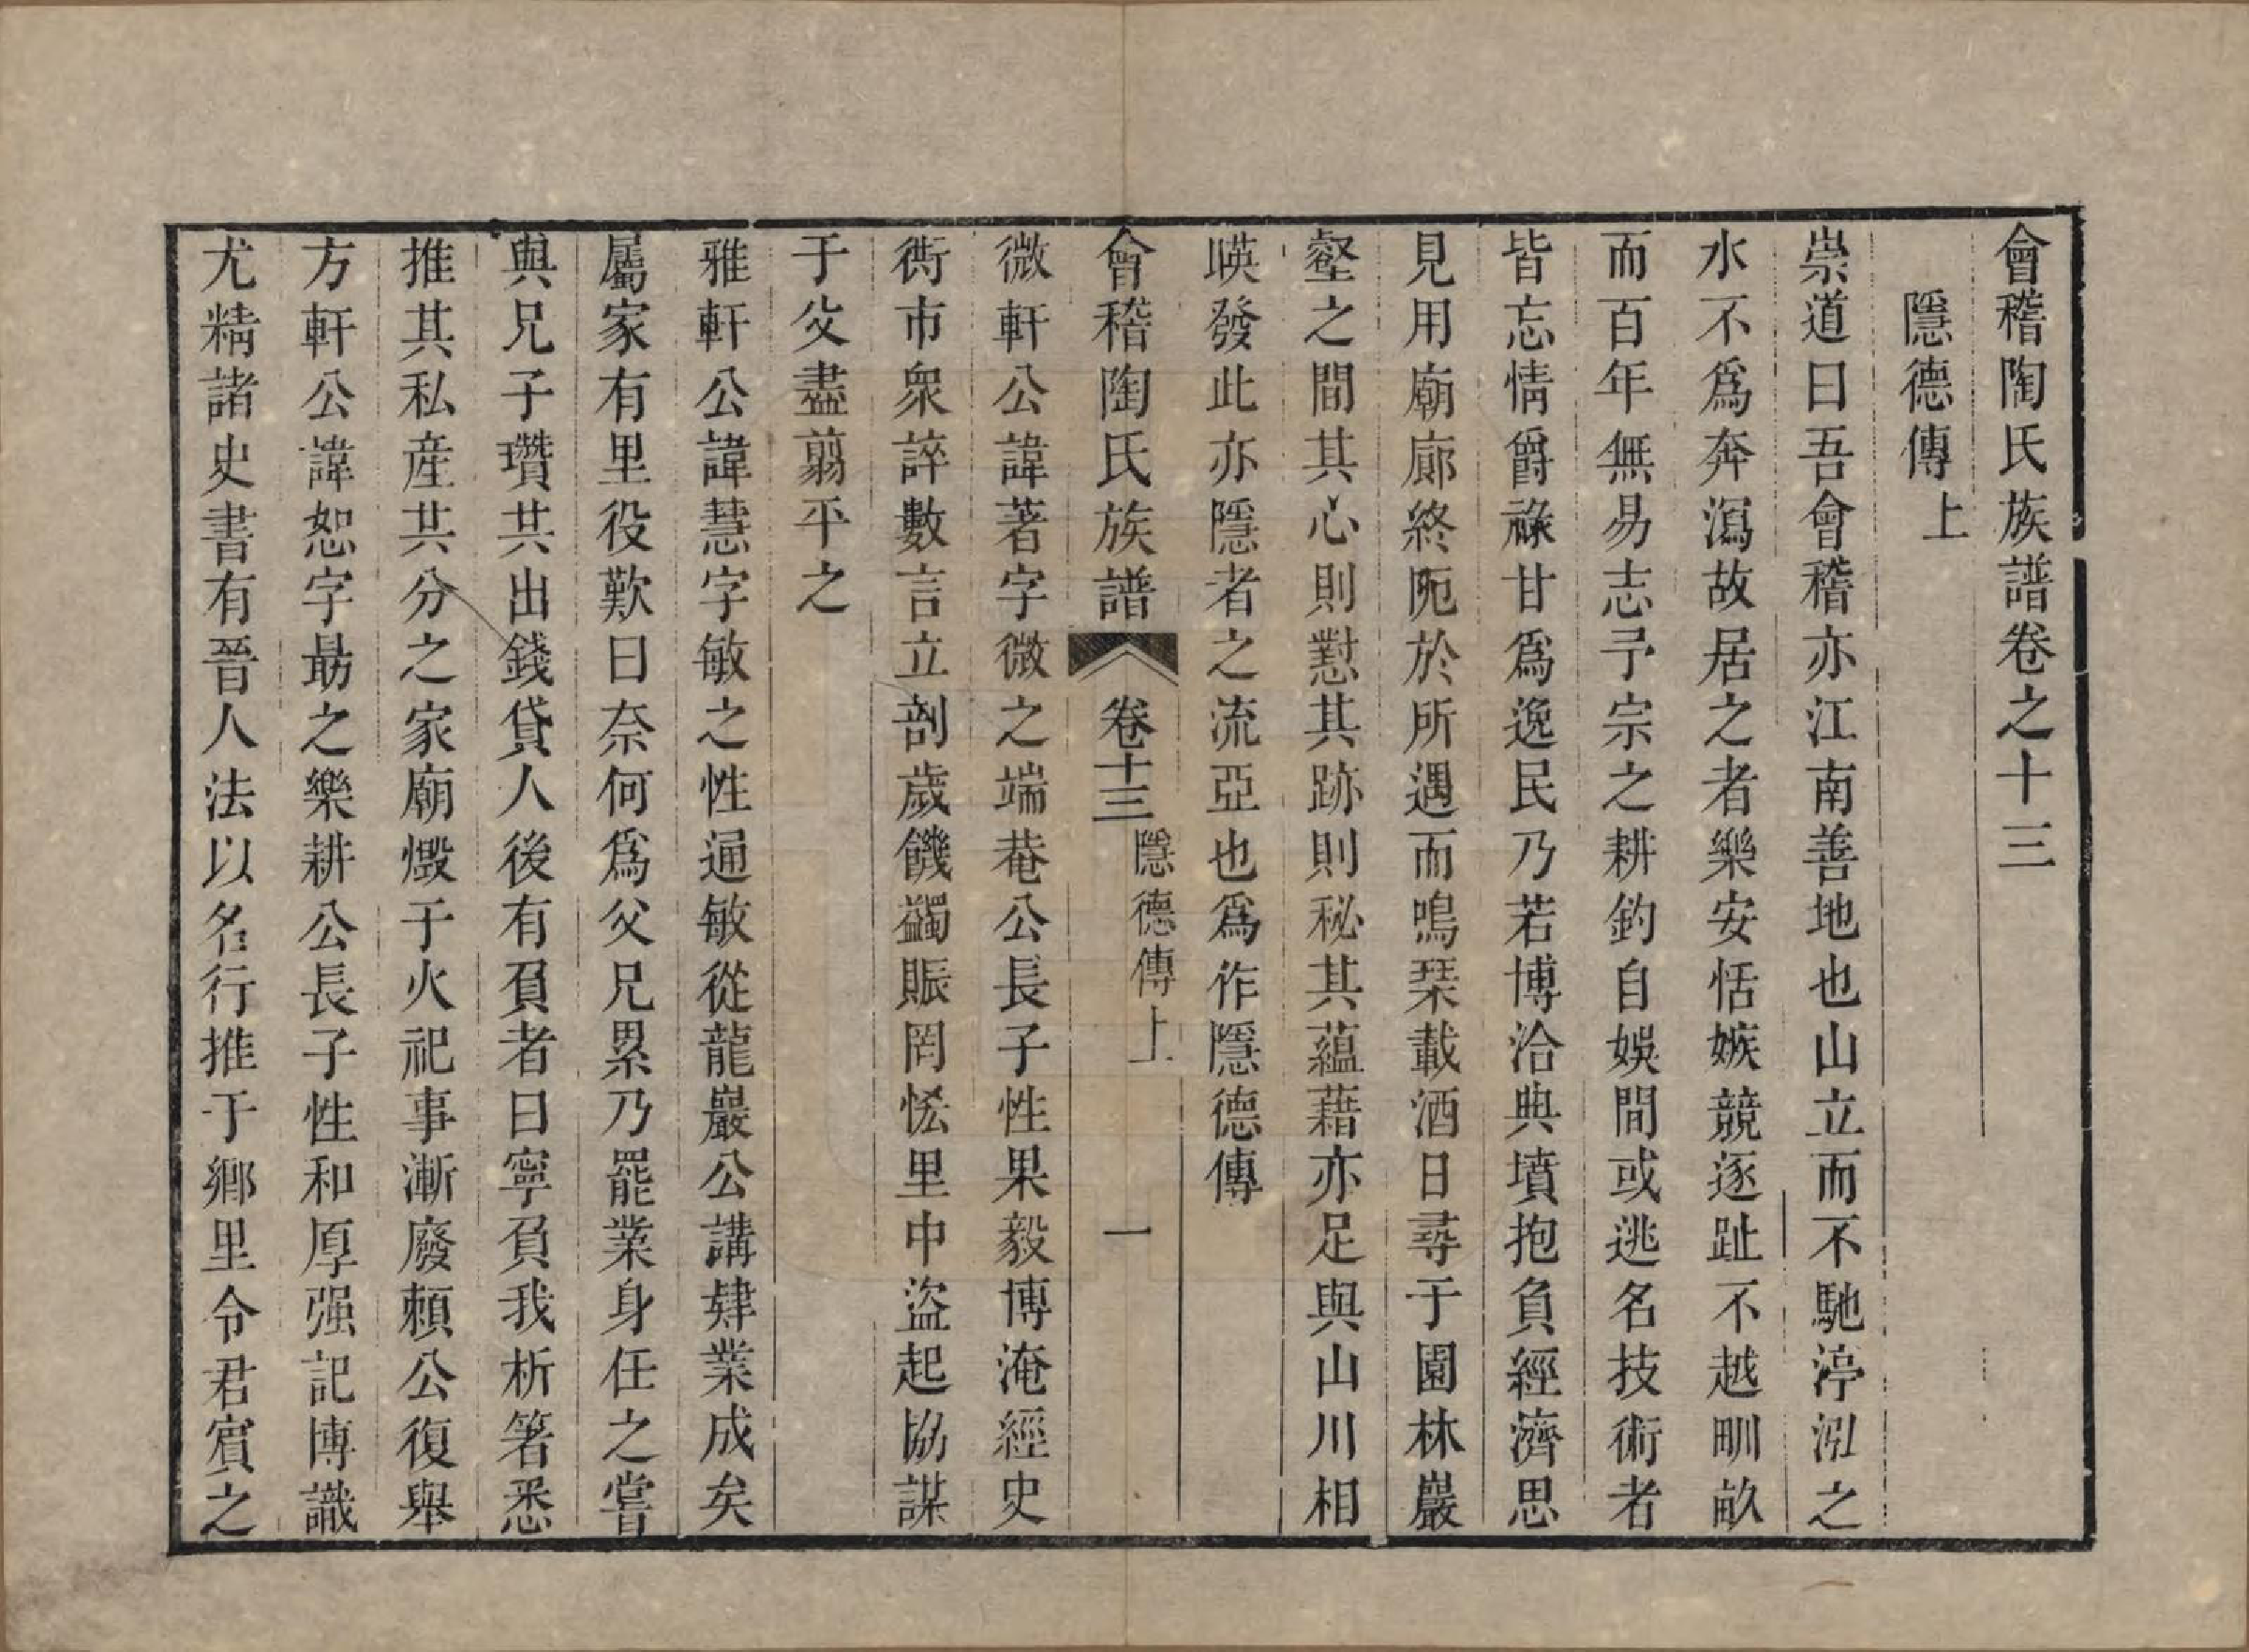 會稽陶氏族譜卷之十三
隱德傳上
崇道曰吾會稽亦江南善地也山立而不馳渟泓之
水不爲奔瀉故居之者樂安恬嫉競逐趾不越甽畝
而百年無易志予宗之耕釣自娛間或逃名技術者
皆忘情爵祿甘爲逸民乃若博洽典墳抱負經濟思
見用廟廊終阨於所遇而鳴琹載酒日尋于園林巖
壑之間其心則懟其跡則秘其蘊藉亦足與山川相
暎發此亦隱者之流亞也爲作隱德傳
會稽陶氏族譜 卷十三 隱德傳上 一
微軒公諱著字微之端菴公長子性果毅博淹經史
衖市衆誶數言立剖歲饑蠲賑罔恡里中盜起協謀
于父盡翦平之
雅軒公諱慧字敏之性通敏從龍巖公講肄業成矣
屬家有里役歎曰奈何爲父兄累乃罷業身任之嘗
與兄子瓚共出錢貸人後有負者曰寧負我析箸悉
推其私産共分之家廟燬于火祀事漸廢賴公復舉
方軒公諱恕字勗之樂耕公長子性和厚强記博識
尤精諸史書有晉人法以名行推于鄉里令君賓之